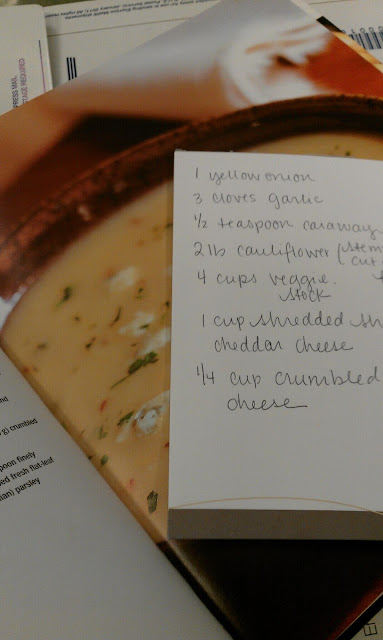 1 yellow onion
3 cloves garlic
1/2 teaspoon caraway
2 lb cauliflower (stem
cut
4 cups veggie
stock
1 cup shredded
cheddar cheese
1/4 cup crumbled
cheese
g) crumbled
poon finely
ed fresh flat-leaf
ian) parsley
PRESS MAIL
TAGE REQUIRED